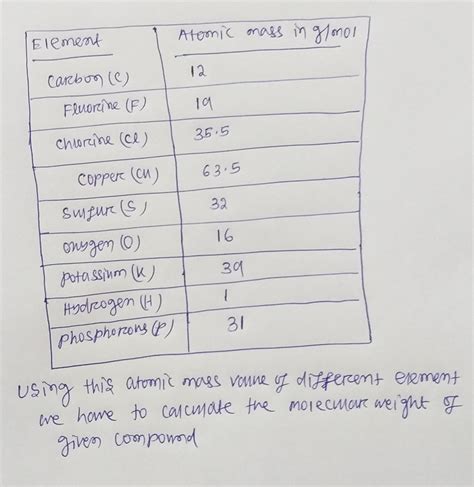 Element Atomic mass in g/mol
Carbon (C) 12
Fluorine (F) 19
Chlorine (Cl) 35.5
Copper (Cu) 63.5
Sulfure (S) 32
Oxygen (O) 16
Potassium (K) 39
Hydrogen (H) 1
Phosphorous (P) 31
Using this atomic mass value of different element
we have to calculate the molecular weight of
given compound